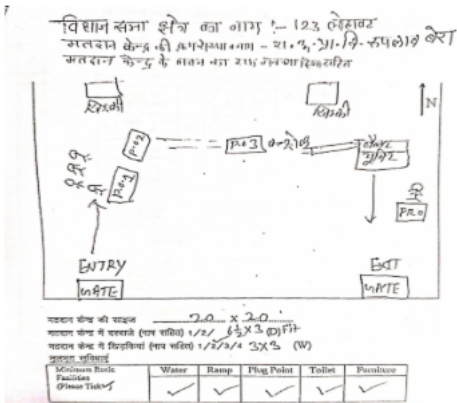 विधान सभा क्षेत्र का नाम :- 123 लोहावट
मतदान केन्द्र की क्रम संख्या व नाम - रा. उ. प्रा. वि. रूपलाव बेरा
मतदान केन्द्र के भवन का
खिड़की
खिड़की
N
P.O 2
P.O 3
कन्ट्रोल
यूनिट
P.O 1
PRO
ENTRY
EXIT
GATE
GATE
मतदान केन्द्र की साइज 20 x 20
मतदान केन्द्र में दरवाजे (नाप सहित) 1/2/ 6½ x 3 (D) Fit
मतदान केन्द्र में खिड़कियां (नाप सहित) 1/2/3/4 3x3 (W)
मूलभूत सुविधाएं
Minimum Basic Facilities (Please Tick✓)
Water
Ramp
Plug Point
Toilet
Furniture
✓ ✓ ✓ ✓ ✓